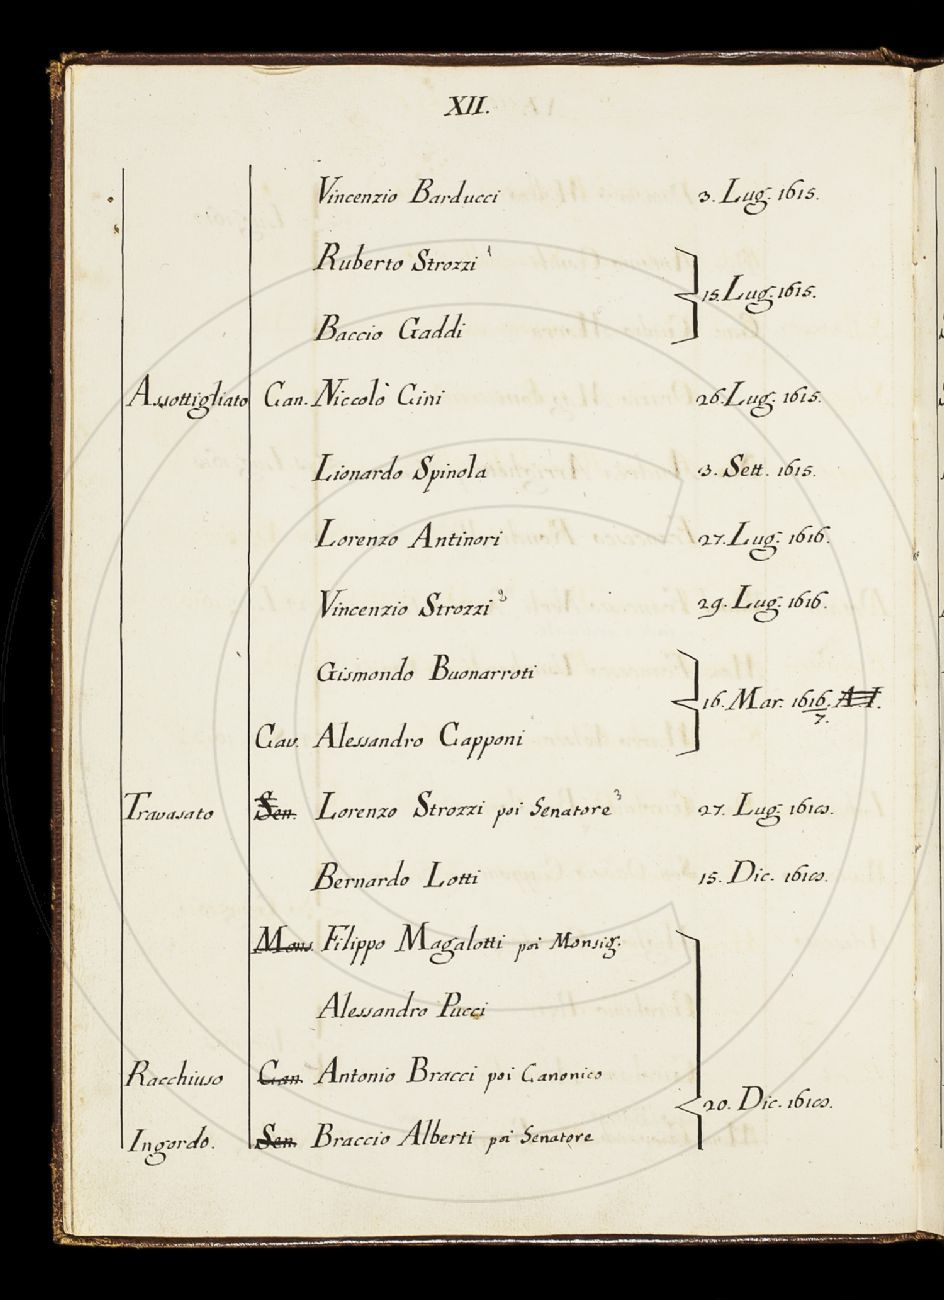 XII.
Vincenzio Barducci 3. Lug. 1615.
Ruberto Strozzi ¹
15. Lug. 1615.
Baccio Gaddi
Assottigliato Can. Niccolò Cini 26. Lug. 1615.
Lionardo Spinola 3. Sett. 1615.
Lorenzo Antinori 27. Lug. 1616.
Vincenzio Strozzi ² 29. Lug. 1616.
Gismondo Buonarroti
16. Mar. 1616.
7.
Cav. Alessandro Capponi
Travasato Sen. Lorenzo Strozzi poi Senatore ³ 27. Lug. 1618.
Bernardo Lotti 15. Dic. 1618.
Mons. Filippo Magalotti poi Monsig.
Alessandro Pucci
Racchiuso Can. Antonio Bracci poi Canonico
20. Dic. 1618.
Ingordo. Sen. Braccio Alberti poi Senatore